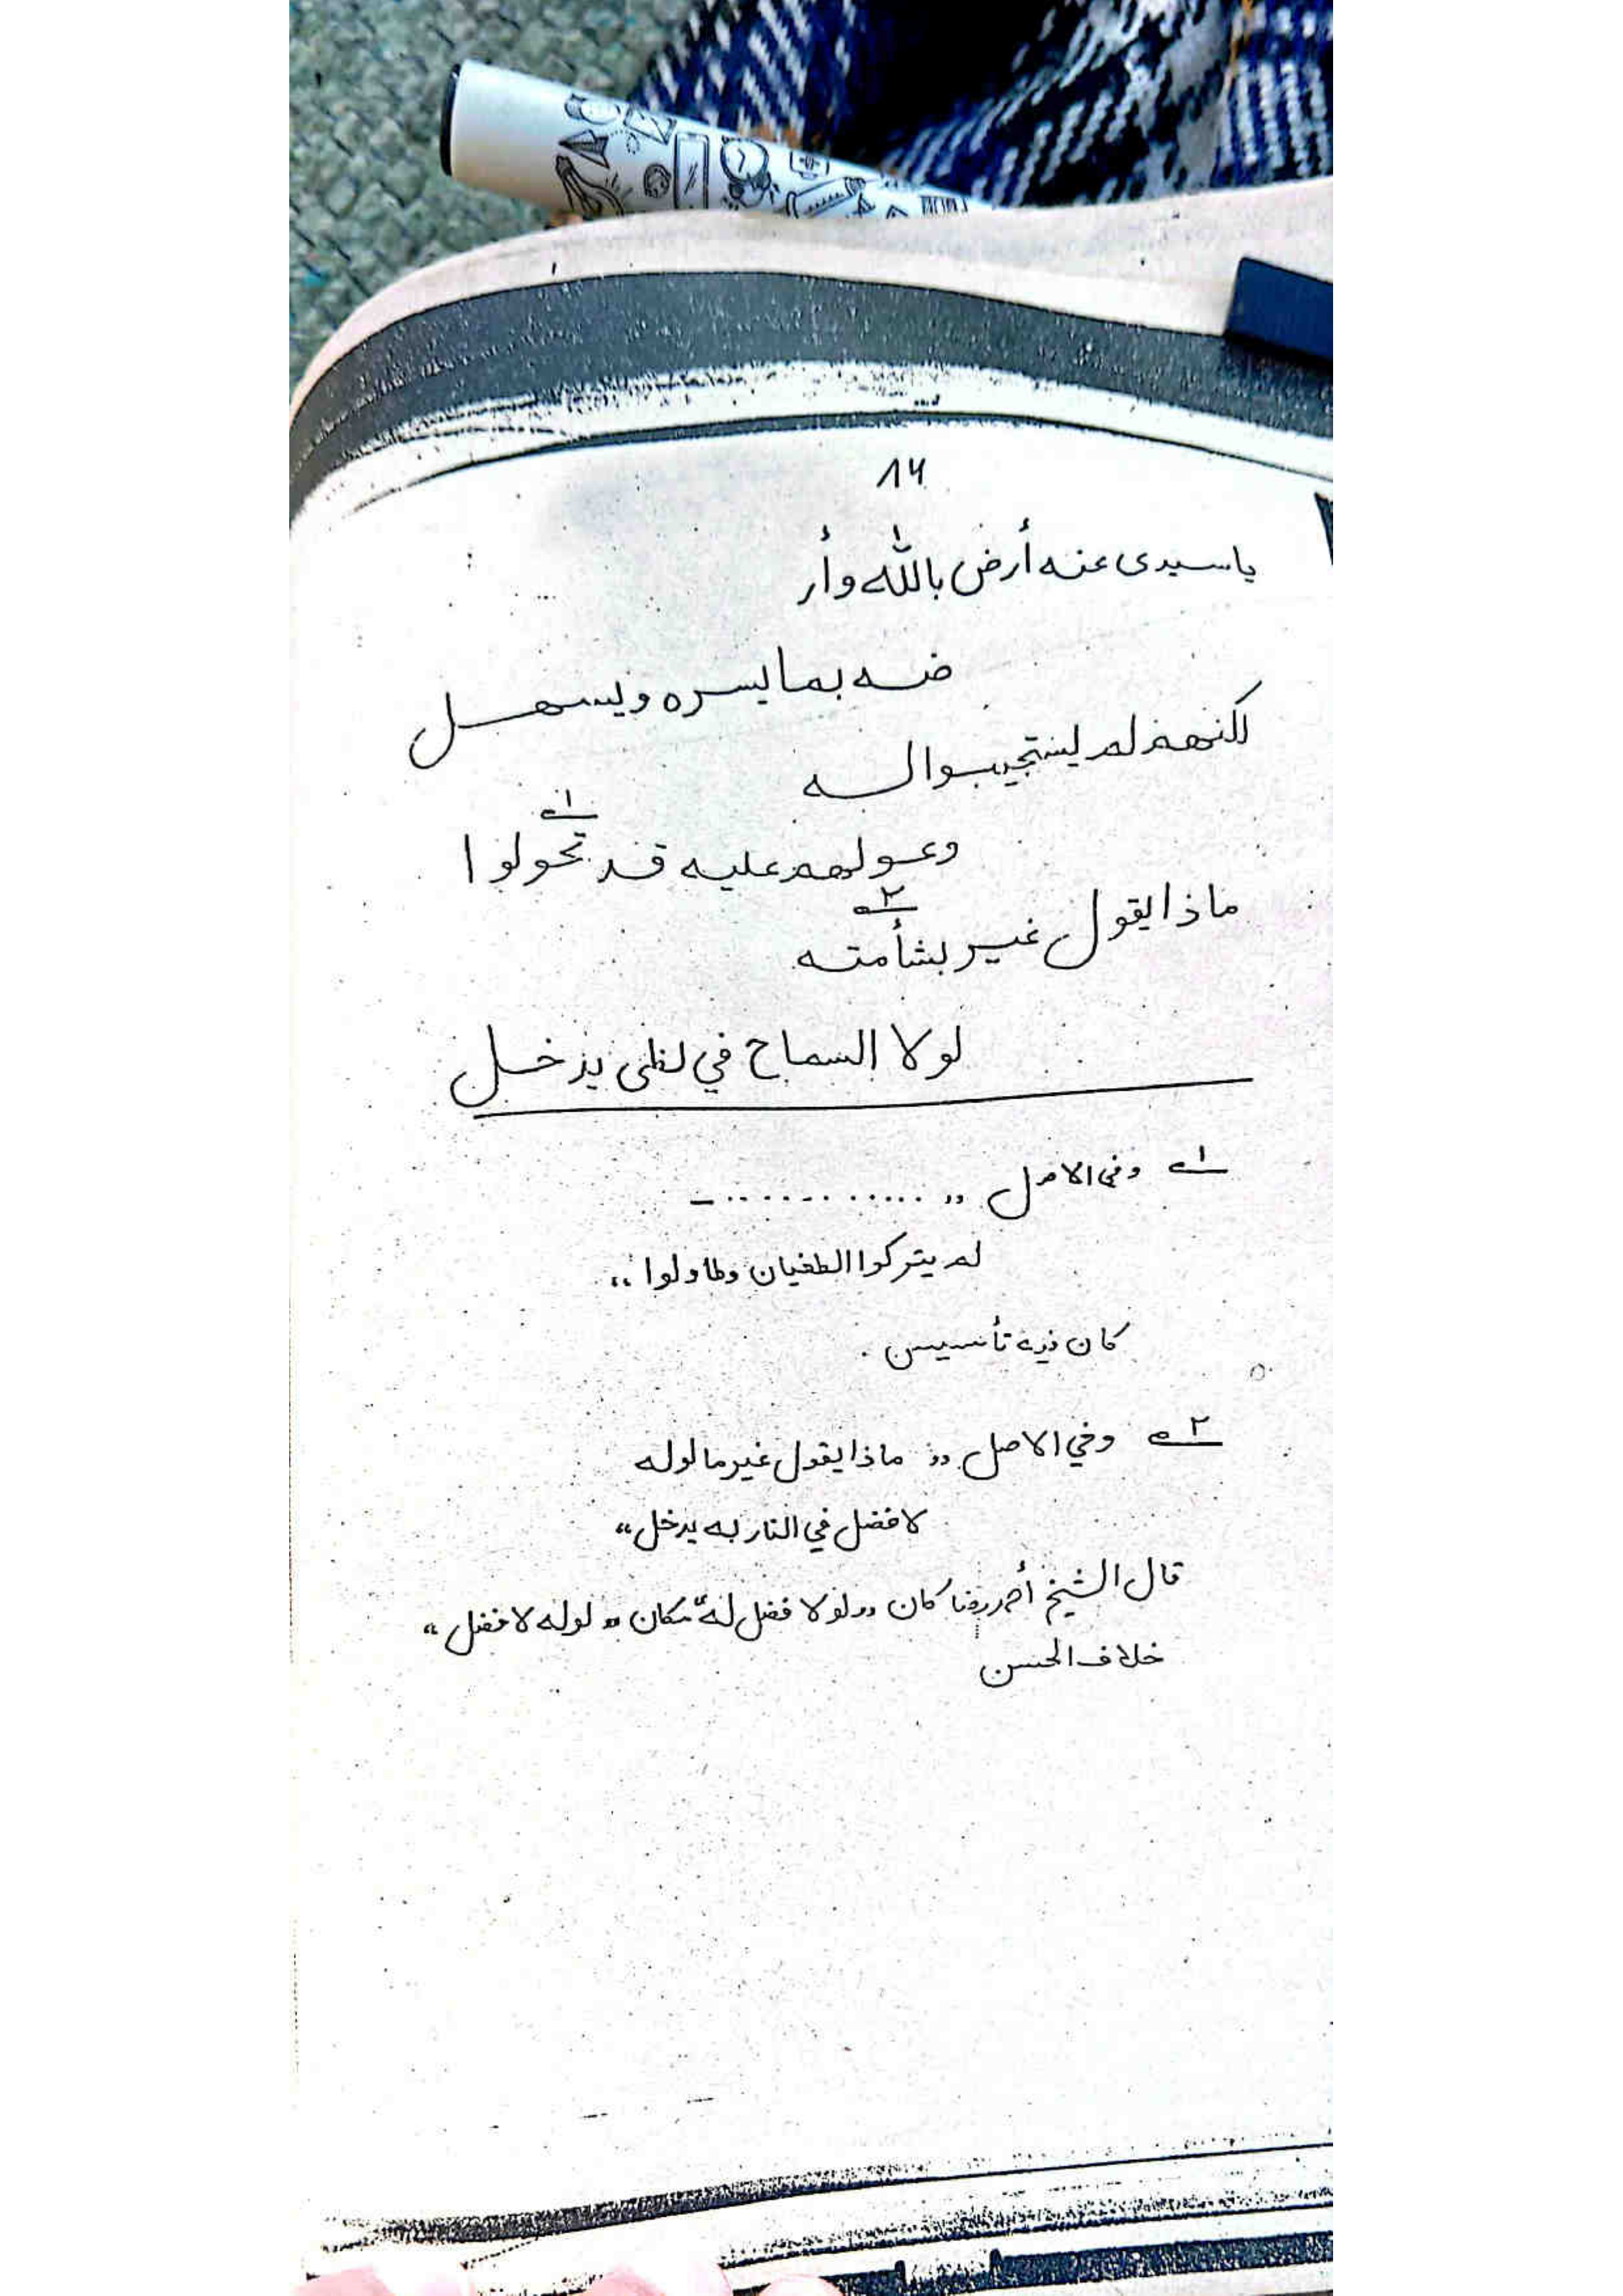 ١٤
ياسيدى عنه أرض بالله وأر
ضه بما يسره ويسهل
لكنهم لم يستجيبوا له
وعولهم عليه قد تحولوا ١
ماذا يقول غير بشأمته ٢
لولا السماح في لظى يدخل
١ وفي الاصل ,, ............ ـ
لم يتركوا الطغيان وطاولوا ,,
كان فيه تأسيس .
٢ وفي الاصل ,, ماذا يقول غير ما لوله
لا فضل في النار به يدخل "
قال الشيخ أحمد رضا كان ,, لولا فضل له " مكان ,, لوله لا فضل "
خلاف الحسن